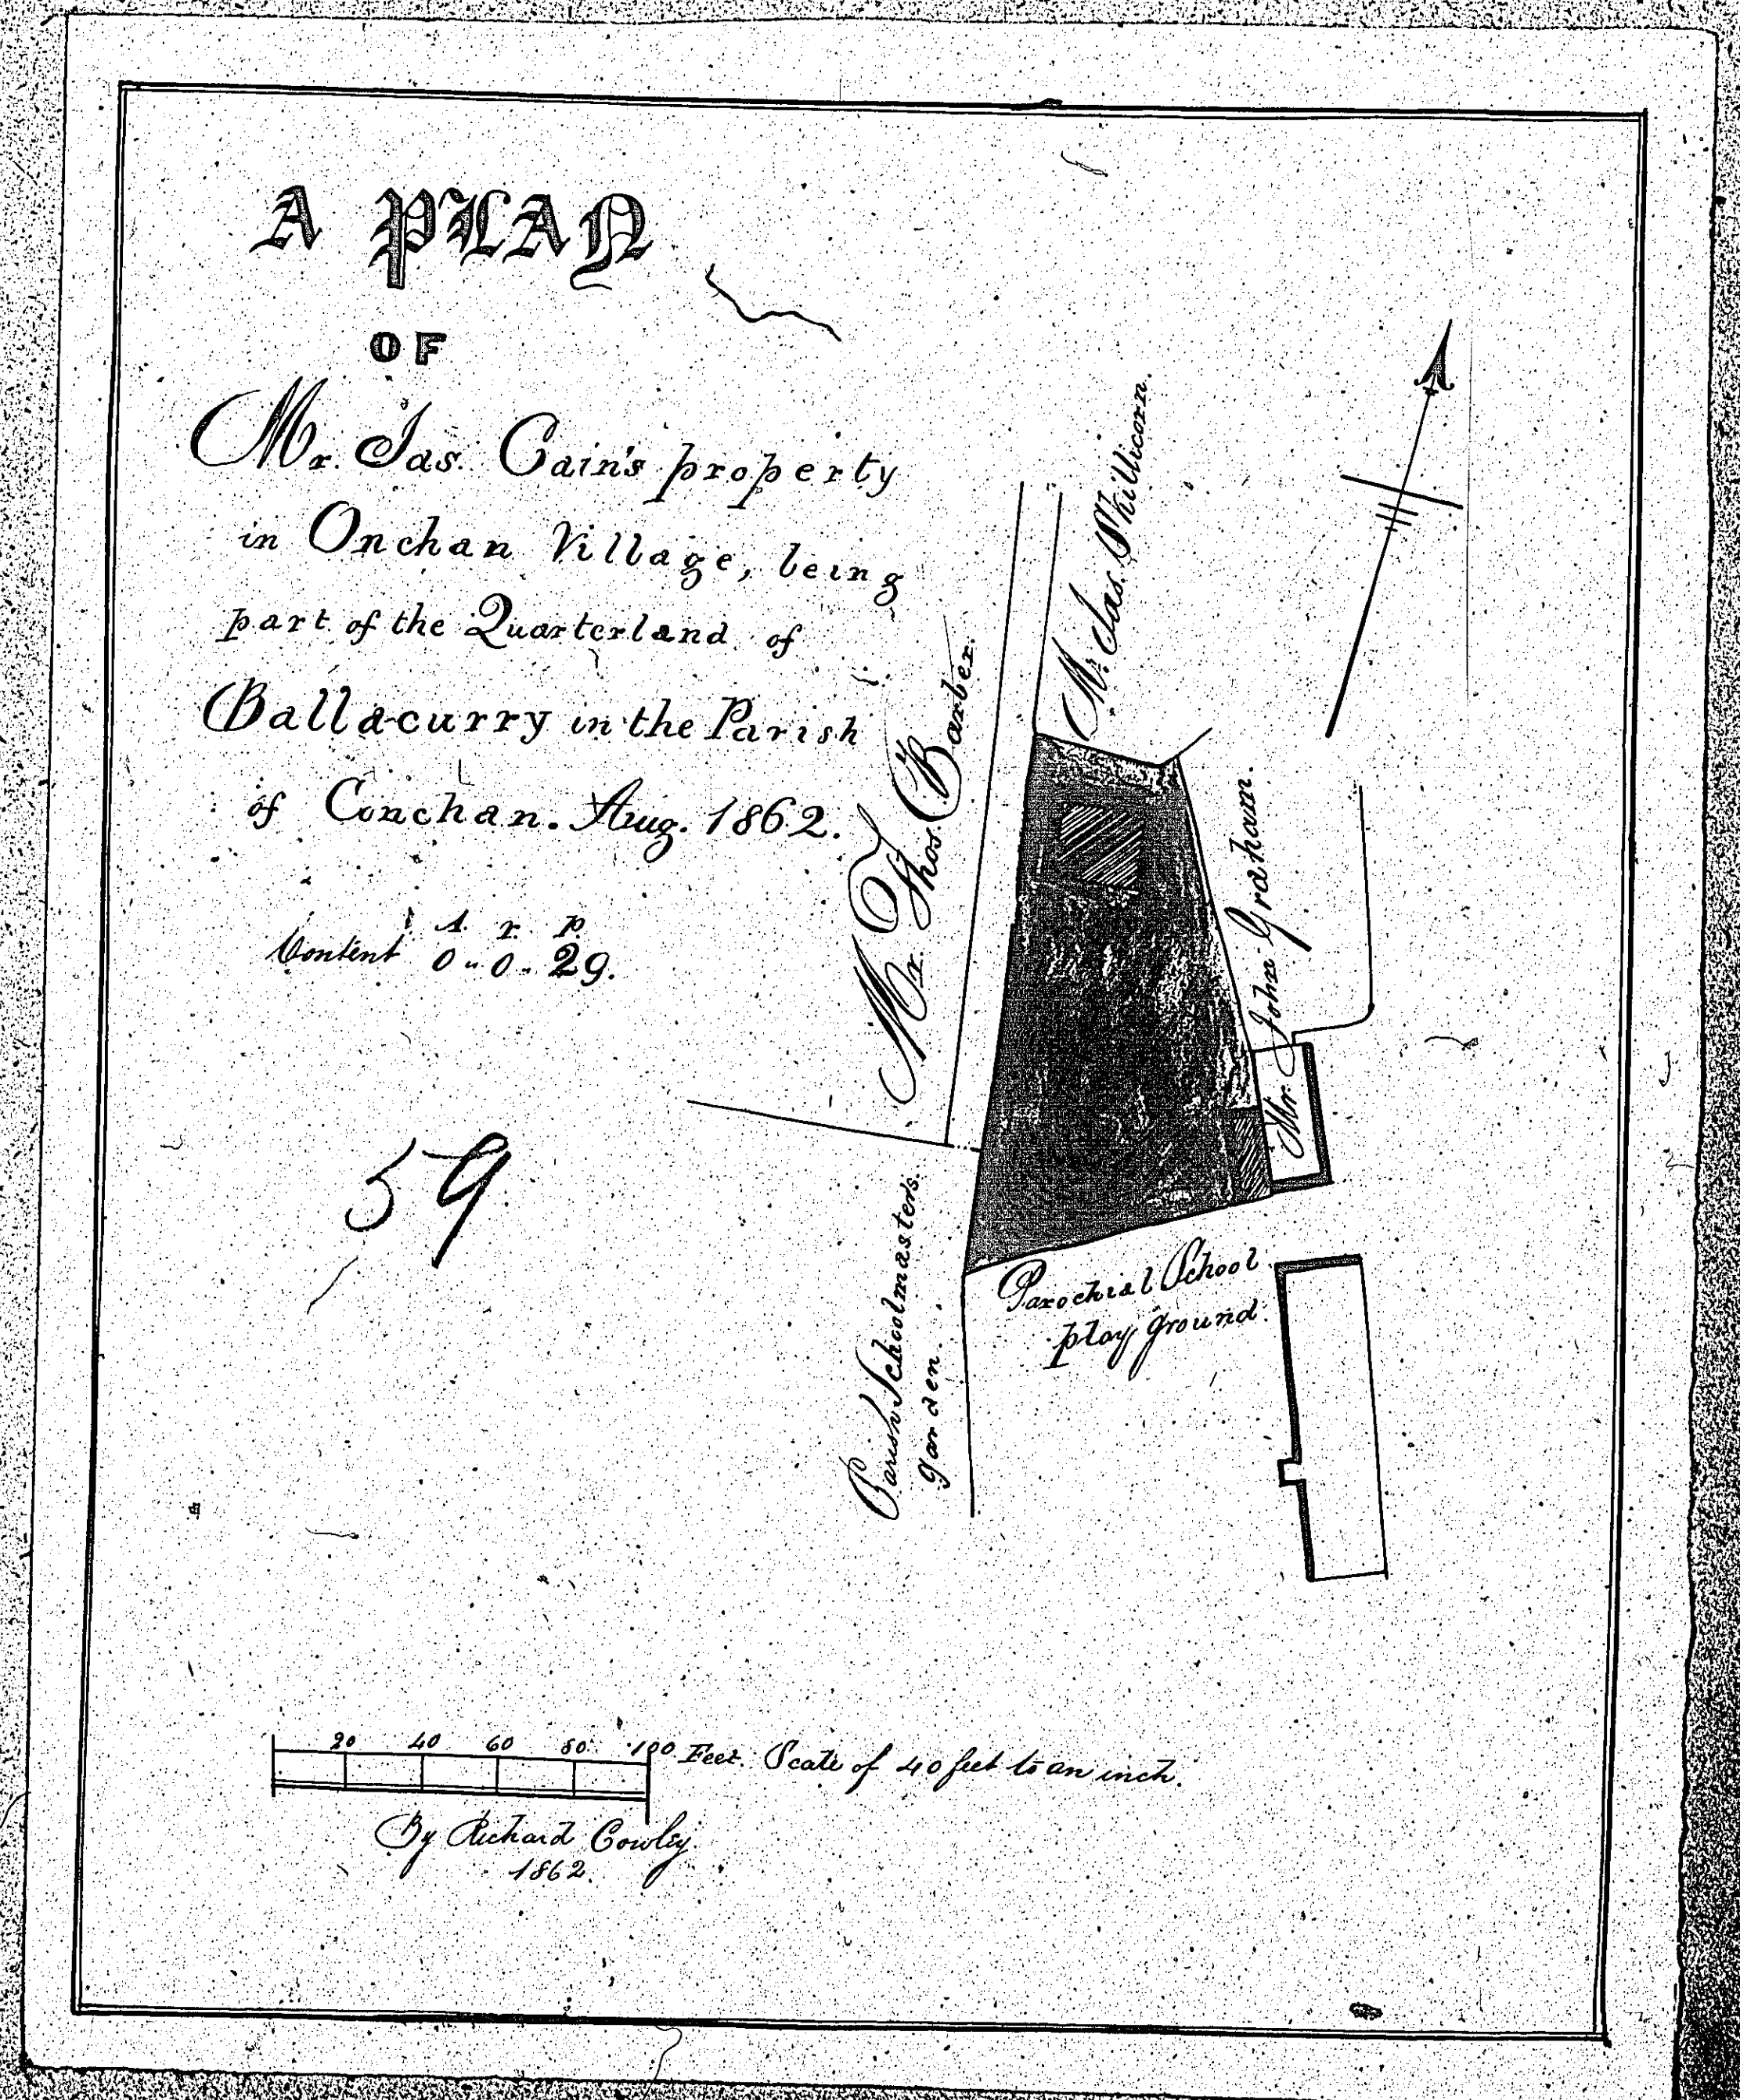 A PLAN
OF
Mr. Jas. Cain's property
in Onchan Village, being
part of the Quarterland of
Ballacurry in the Parish
of Conchan. Aug. 1862.
A. r. p.
Content 0 " 0 " 29.
59
Mr. Thos. Barber.
Mr. Jas. Skillicorn.
Mr. John Graham.
Parish Schoolmaster's
garden.
Parochial School
play ground.
20 40 60 80 100 Feet. Scale of 40 feet to an inch.
By Richard Cowley
1862.